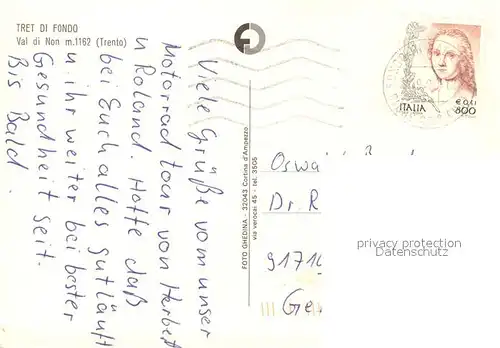 TRET DI FONDO
Val di Non m.1162 (Trento)
Viele Grüße vom unser
Motorrad tour von Herbert
u Roland. Hoffe daß
bei Euch alles gut läuft
u. ihr weiter bei bester
Gesundheit seit.
Bis Bald.
FOTO GHEDINA - 32043 Cortina d'Ampezzo
via verocai 45 - tel. 3505
ITALIA
€ 0,41
800
Oswa
Dr. R
privacy protection
Datenschutz
9171
Ge